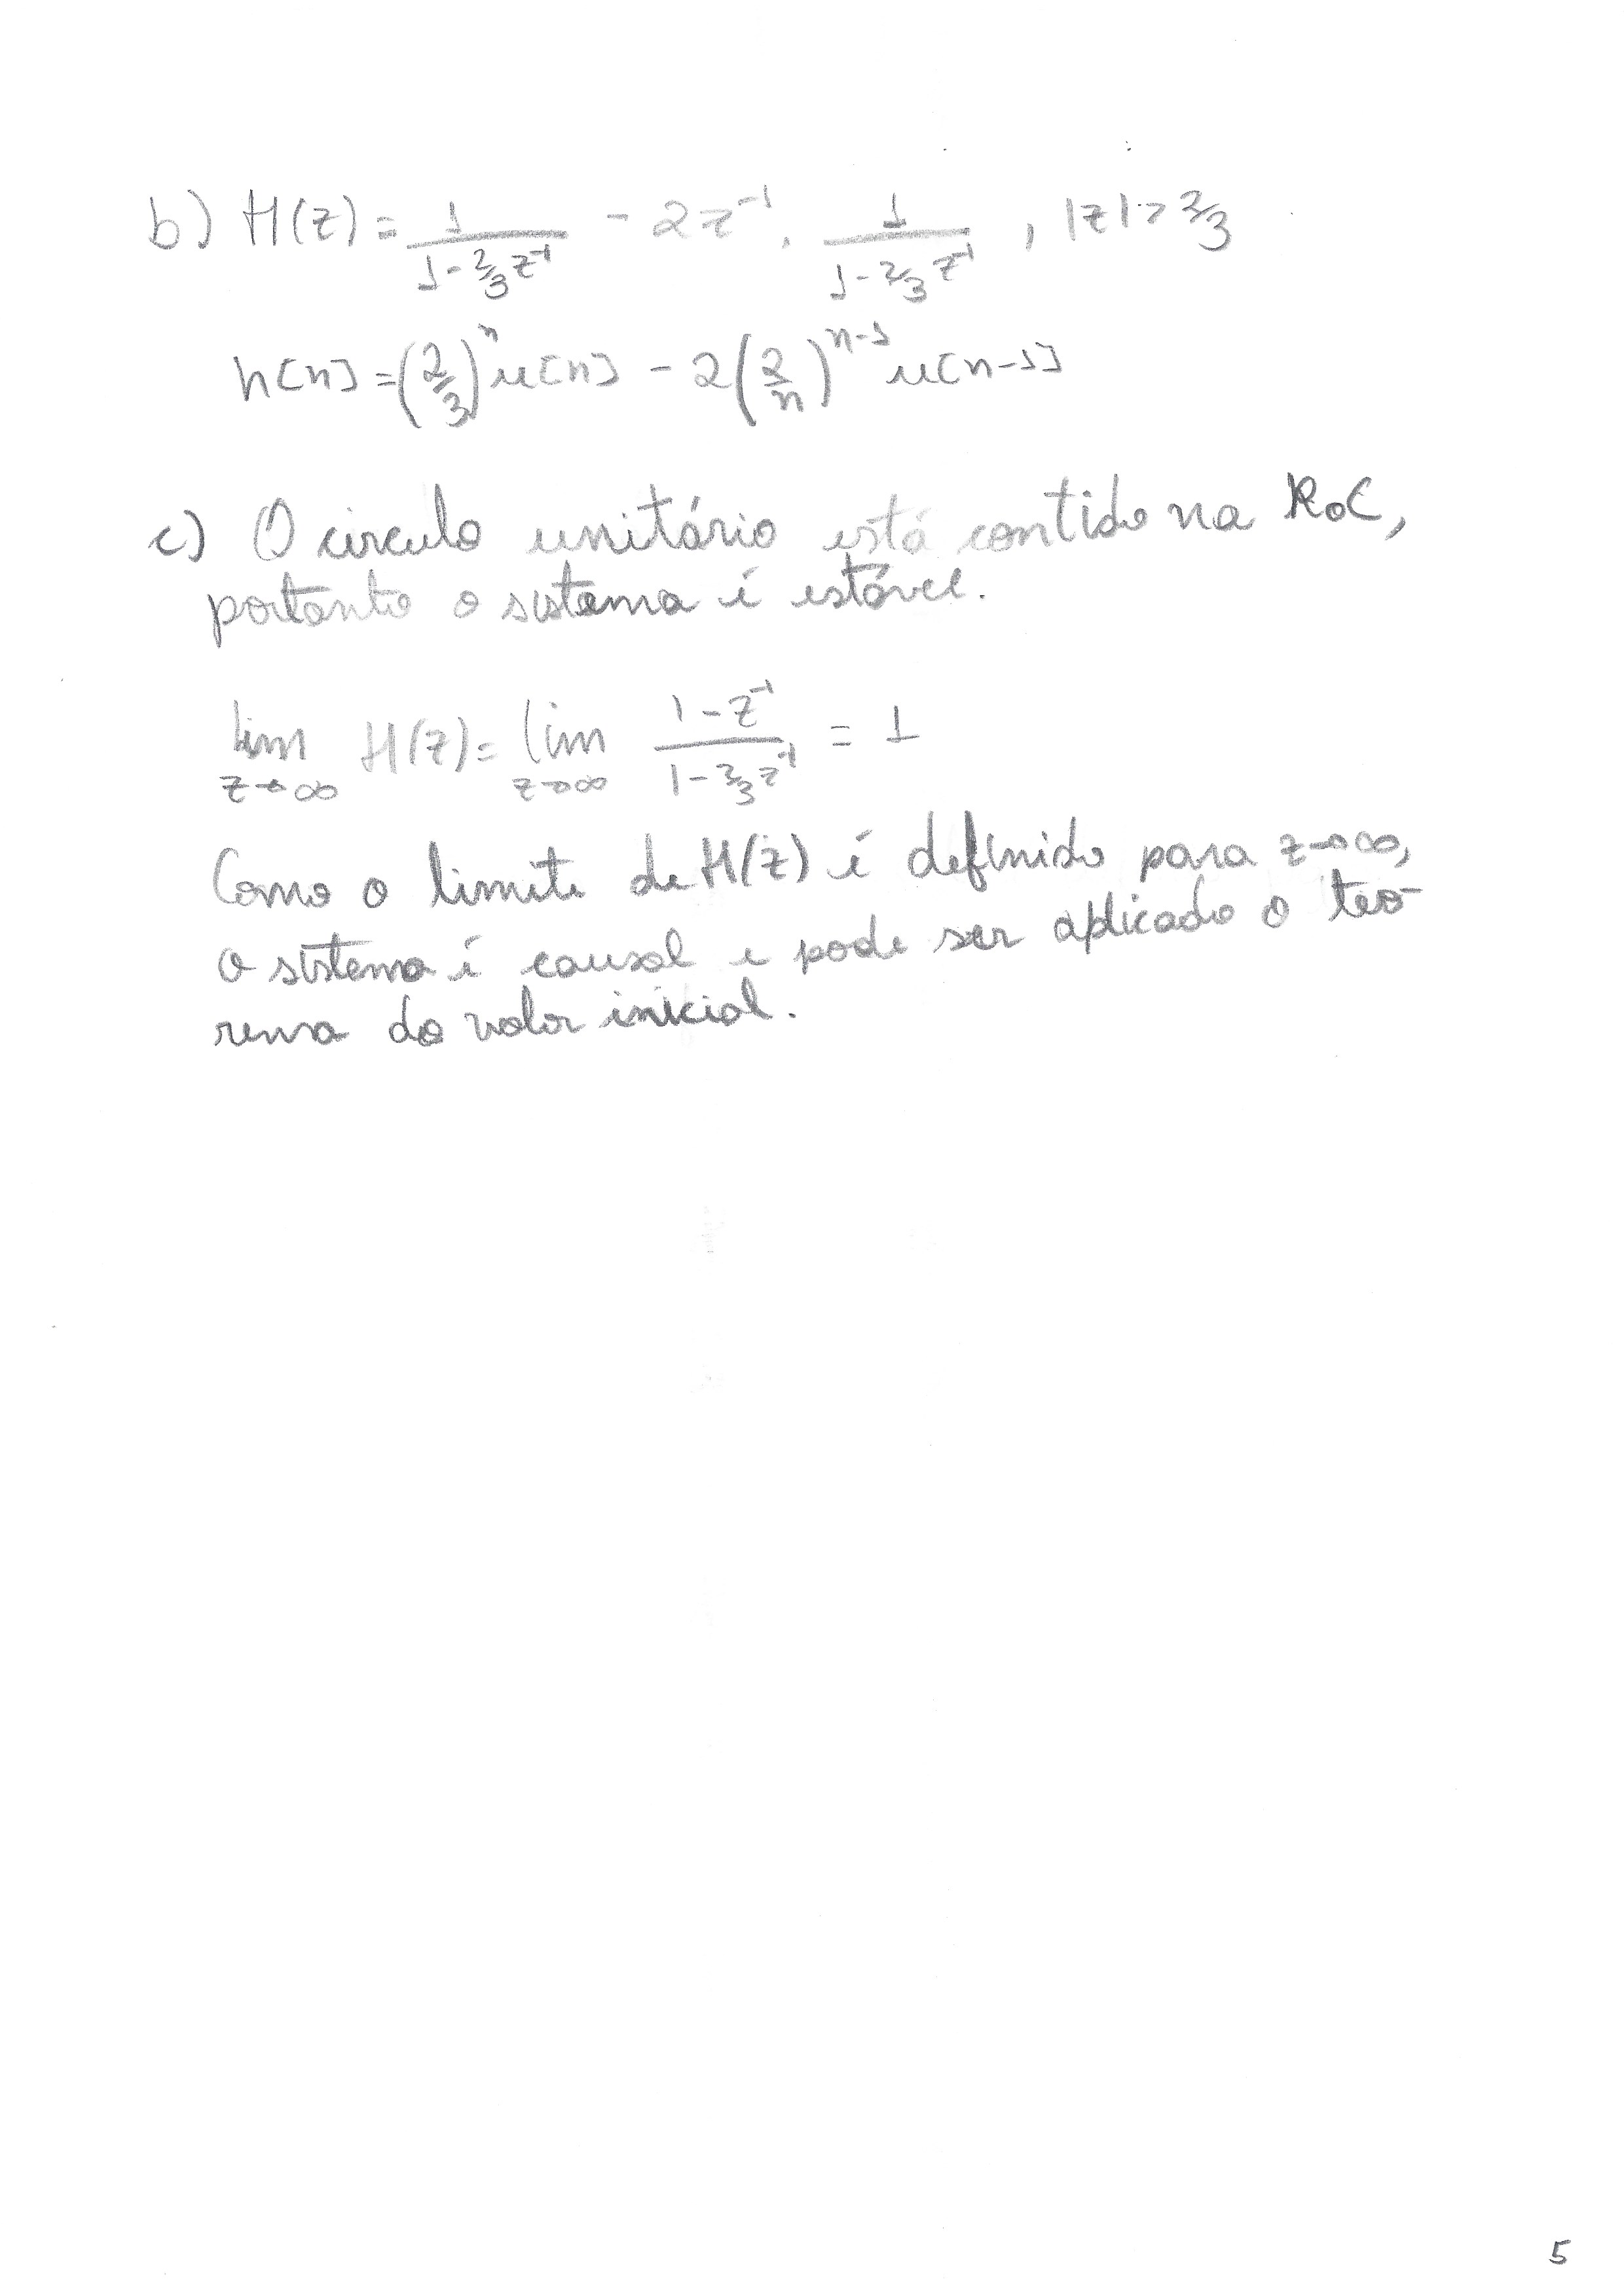 b) H(z) = 1/(1 - 2/3 z^-1) - 2z^-1 . 1/(1 - 2/3 z^-1) , |z| > 2/3
h[n] = (2/3)^n u[n] - 2(2/n)^(n-1) u[n-1]
c) O circulo unitário está contido na RoC,
portanto o sistema é estável.
lim z→∞ H(z) = lim z→∞ (1 - z^-1)/(1 - 2/3 z^-1) = 1
Como o limite de H(z) é definido para z→∞,
o sistema é causal e pode ser aplicado o teo-
rema do valor inicial.
5